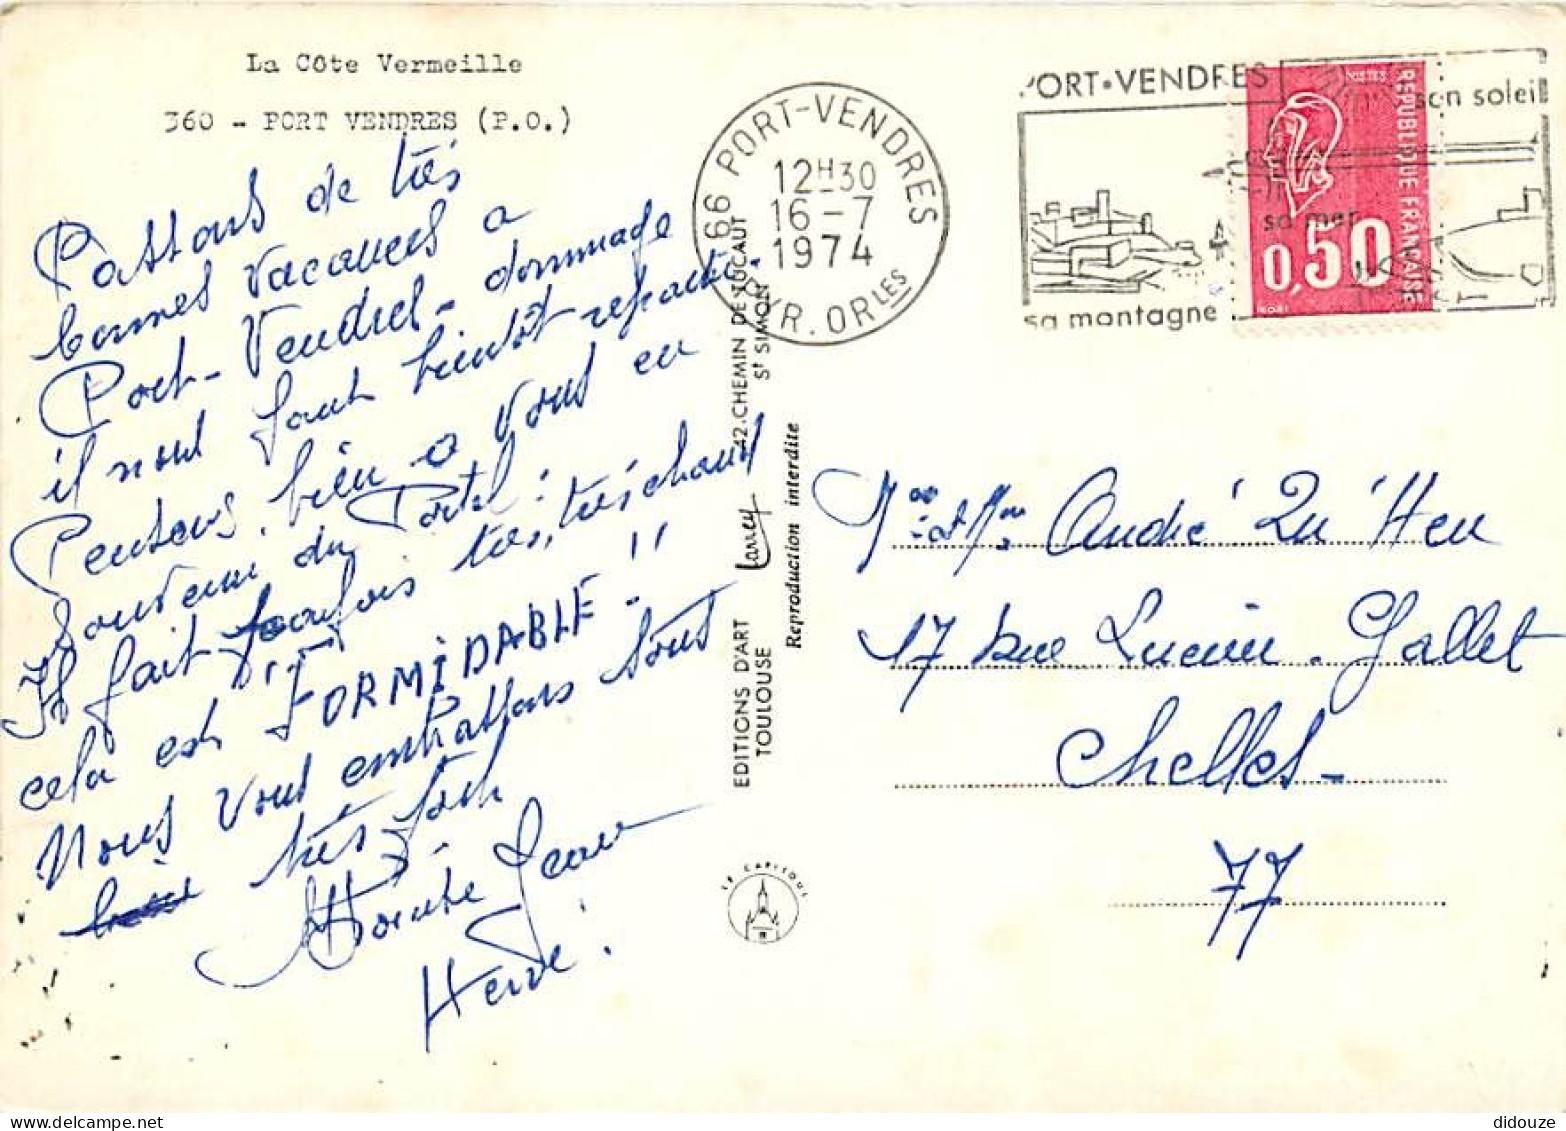 La Côte Vermeille
360 - PORT VENDRES (P.O.)
Passons de très
bonnes vacances a
Port-Vendres - dommage
il nous faut bientôt repartir.
Pensons bien a vous en
souvenir du Portel :
Il fait parfois très, très chaud
cela est FORMIDABLE !!
Nous vous embrassons tous
très fort
Jean
Hervé.
66 PORT-VENDRES
12H30
16-7
1974
PYR. ORLES
PORT•VENDRES
son soleil
sa mer
sa montagne
POSTES
REPUBLIQUE FRANCAISE
0,50
EDITIONS D'ART Larrey 42.CHEMIN DE TUCAUT
TOULOUSE St SIMON
Reproduction interdite
LE CAPITOUL
Mr et Mme André Qu'Heu
17 rue Lucien Gallet
Chelles -
77
didouze